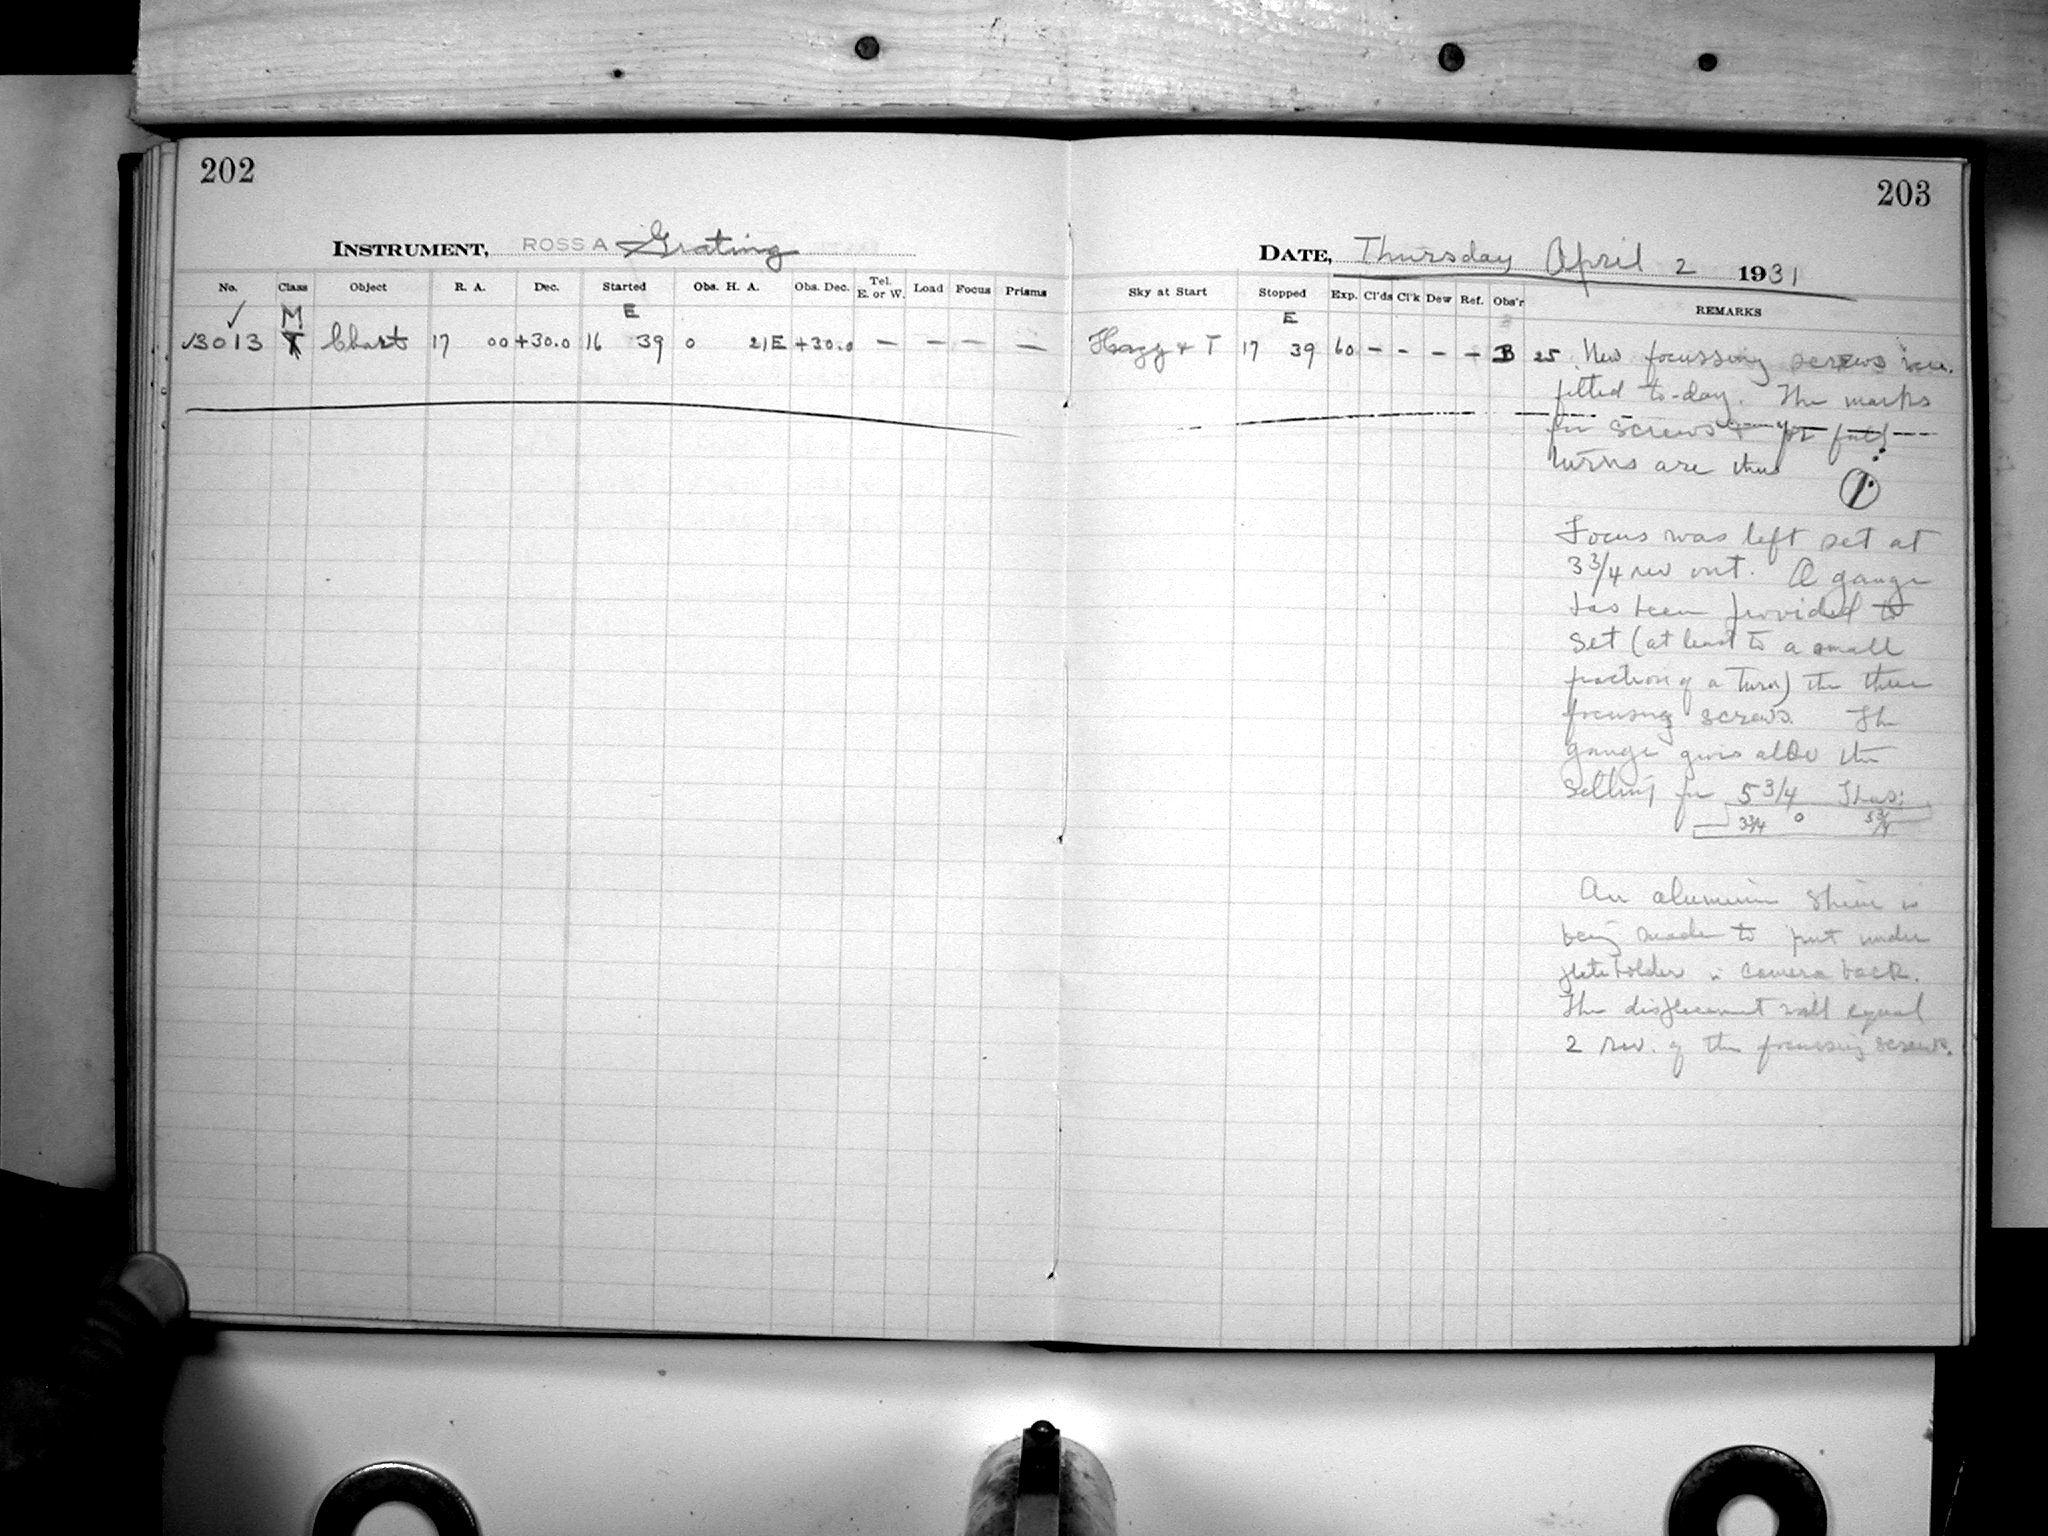 202
203
INSTRUMENT, ROSS A Grating
DATE, Thursday April 2 1931
No. Class Object R. A. Dec. Started Obs. H. A. Obs. Dec. Tel. E. or W. Load Focus Prisms Sky at Start Stopped Exp. Cl'ds Cl'k Dew Ref. Obs'r REMARKS
✓ M E E
√3013 Chart 17 00 +30.0 16 39 0 21E +30.0 — — — — Hazy + T 17 39 60 - - - - B 25 New focussing screws were
fitted to-day. The marks
for screws + for full
turns are thus
Focus was left set at
3 3/4 rev out. A gauge
has been provided to
set (at least to a small
fraction of a turn) the three
focusing screws. The
gauge gives also the
setting for 5 3/4 Thus:
3 3/4 0 5 3/4
An aluminum shim is
being made to put under
plateholder in camera back.
The displacement will equal
2 rev. of the focussing screws.